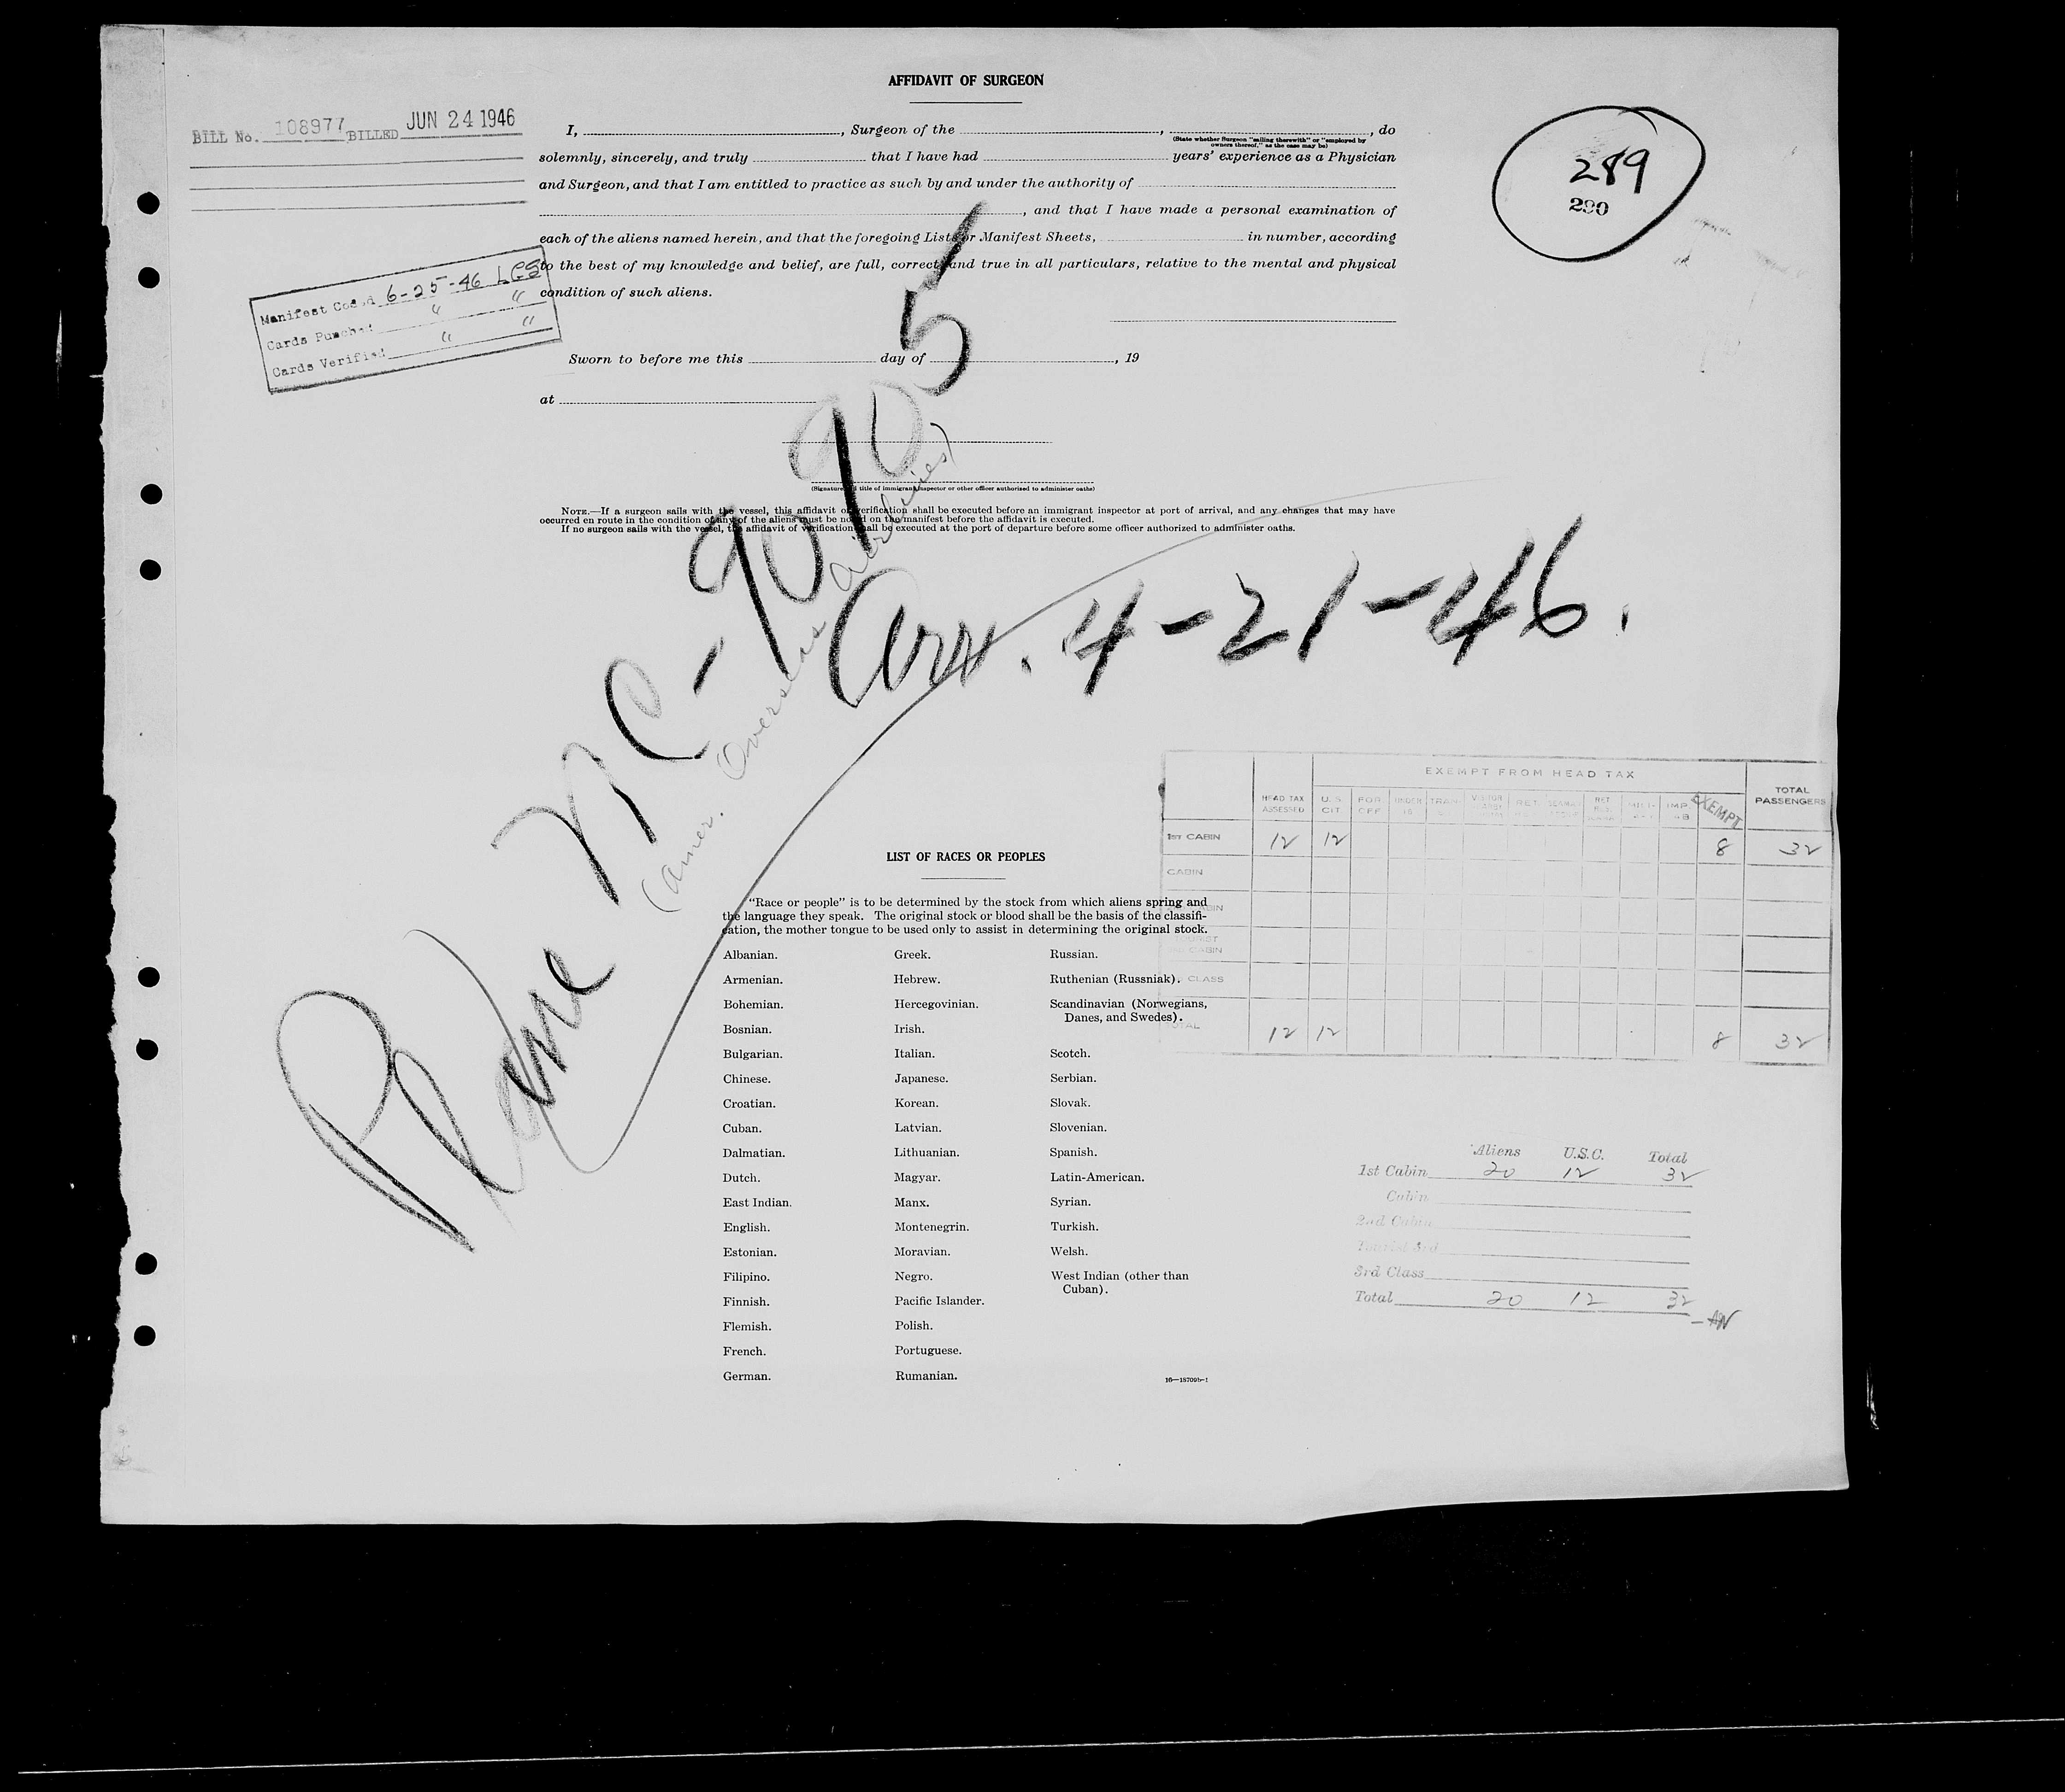 AFFIDAVIT OF SURGEON
BILL No. 108977 BILLED JUN 24 1946
289
290
I, , Surgeon of the , , do
(State whether Surgeon "sailing therewith" or "employed by
owners thereof," as the case may be)
solemnly, sincerely, and truly that I have had years' experience as a Physician
and Surgeon, and that I am entitled to practice as such by and under the authority of
, and that I have made a personal examination of
each of the aliens named herein, and that the foregoing Lists or Manifest Sheets, in number, according
to the best of my knowledge and belief, are full, correct, and true in all particulars, relative to the mental and physical
condition of such aliens.
Manifest Coded 6-25-46 LCS
Cards Punched " "
Cards Verified " "
Sworn to before me this day of , 19
at
(Signature and title of immigrant inspector or other officer authorized to administer oaths)
NOTE.—If a surgeon sails with the vessel, this affidavit of verification shall be executed before an immigrant inspector at port of arrival, and any changes that may have
occurred en route in the condition of any of the aliens must be noted on the manifest before the affidavit is executed.
If no surgeon sails with the vessel, the affidavit of verification shall be executed at the port of departure before some officer authorized to administer oaths.
Plane NC-90905
(Amer. Overseas Airlines)
Arr. 4-21-46.
EXEMPT FROM HEAD TAX
HEAD TAX ASSESSED U.S. CIT. FOR OFF UNDER 16 TRAN RET. IMP EXEMPT TOTAL PASSENGERS
1ST CABIN 12 12 8 32
CABIN
CABIN
CABIN
CLASS
TOTAL 12 12 8 32
LIST OF RACES OR PEOPLES
"Race or people" is to be determined by the stock from which aliens spring and
the language they speak. The original stock or blood shall be the basis of the classifi-
cation, the mother tongue to be used only to assist in determining the original stock.
Albanian. Greek. Russian.
Armenian. Hebrew. Ruthenian (Russniak).
Bohemian. Hercegovinian. Scandinavian (Norwegians,
Danes, and Swedes).
Bosnian. Irish.
Bulgarian. Italian. Scotch.
Chinese. Japanese. Serbian.
Croatian. Korean. Slovak.
Cuban. Latvian. Slovenian.
Dalmatian. Lithuanian. Spanish.
Dutch. Magyar. Latin-American.
East Indian. Manx. Syrian.
English. Montenegrin. Turkish.
Estonian. Moravian. Welsh.
Filipino. Negro. West Indian (other than
Cuban).
Finnish. Pacific Islander.
Flemish. Polish.
French. Portuguese.
German. Rumanian.
16—18709b-1
Aliens U.S.C. Total
1st Cabin 20 12 32
Cabin
2nd Cabin
Tourist 3rd
3rd Class
Total 20 12 32
—AW